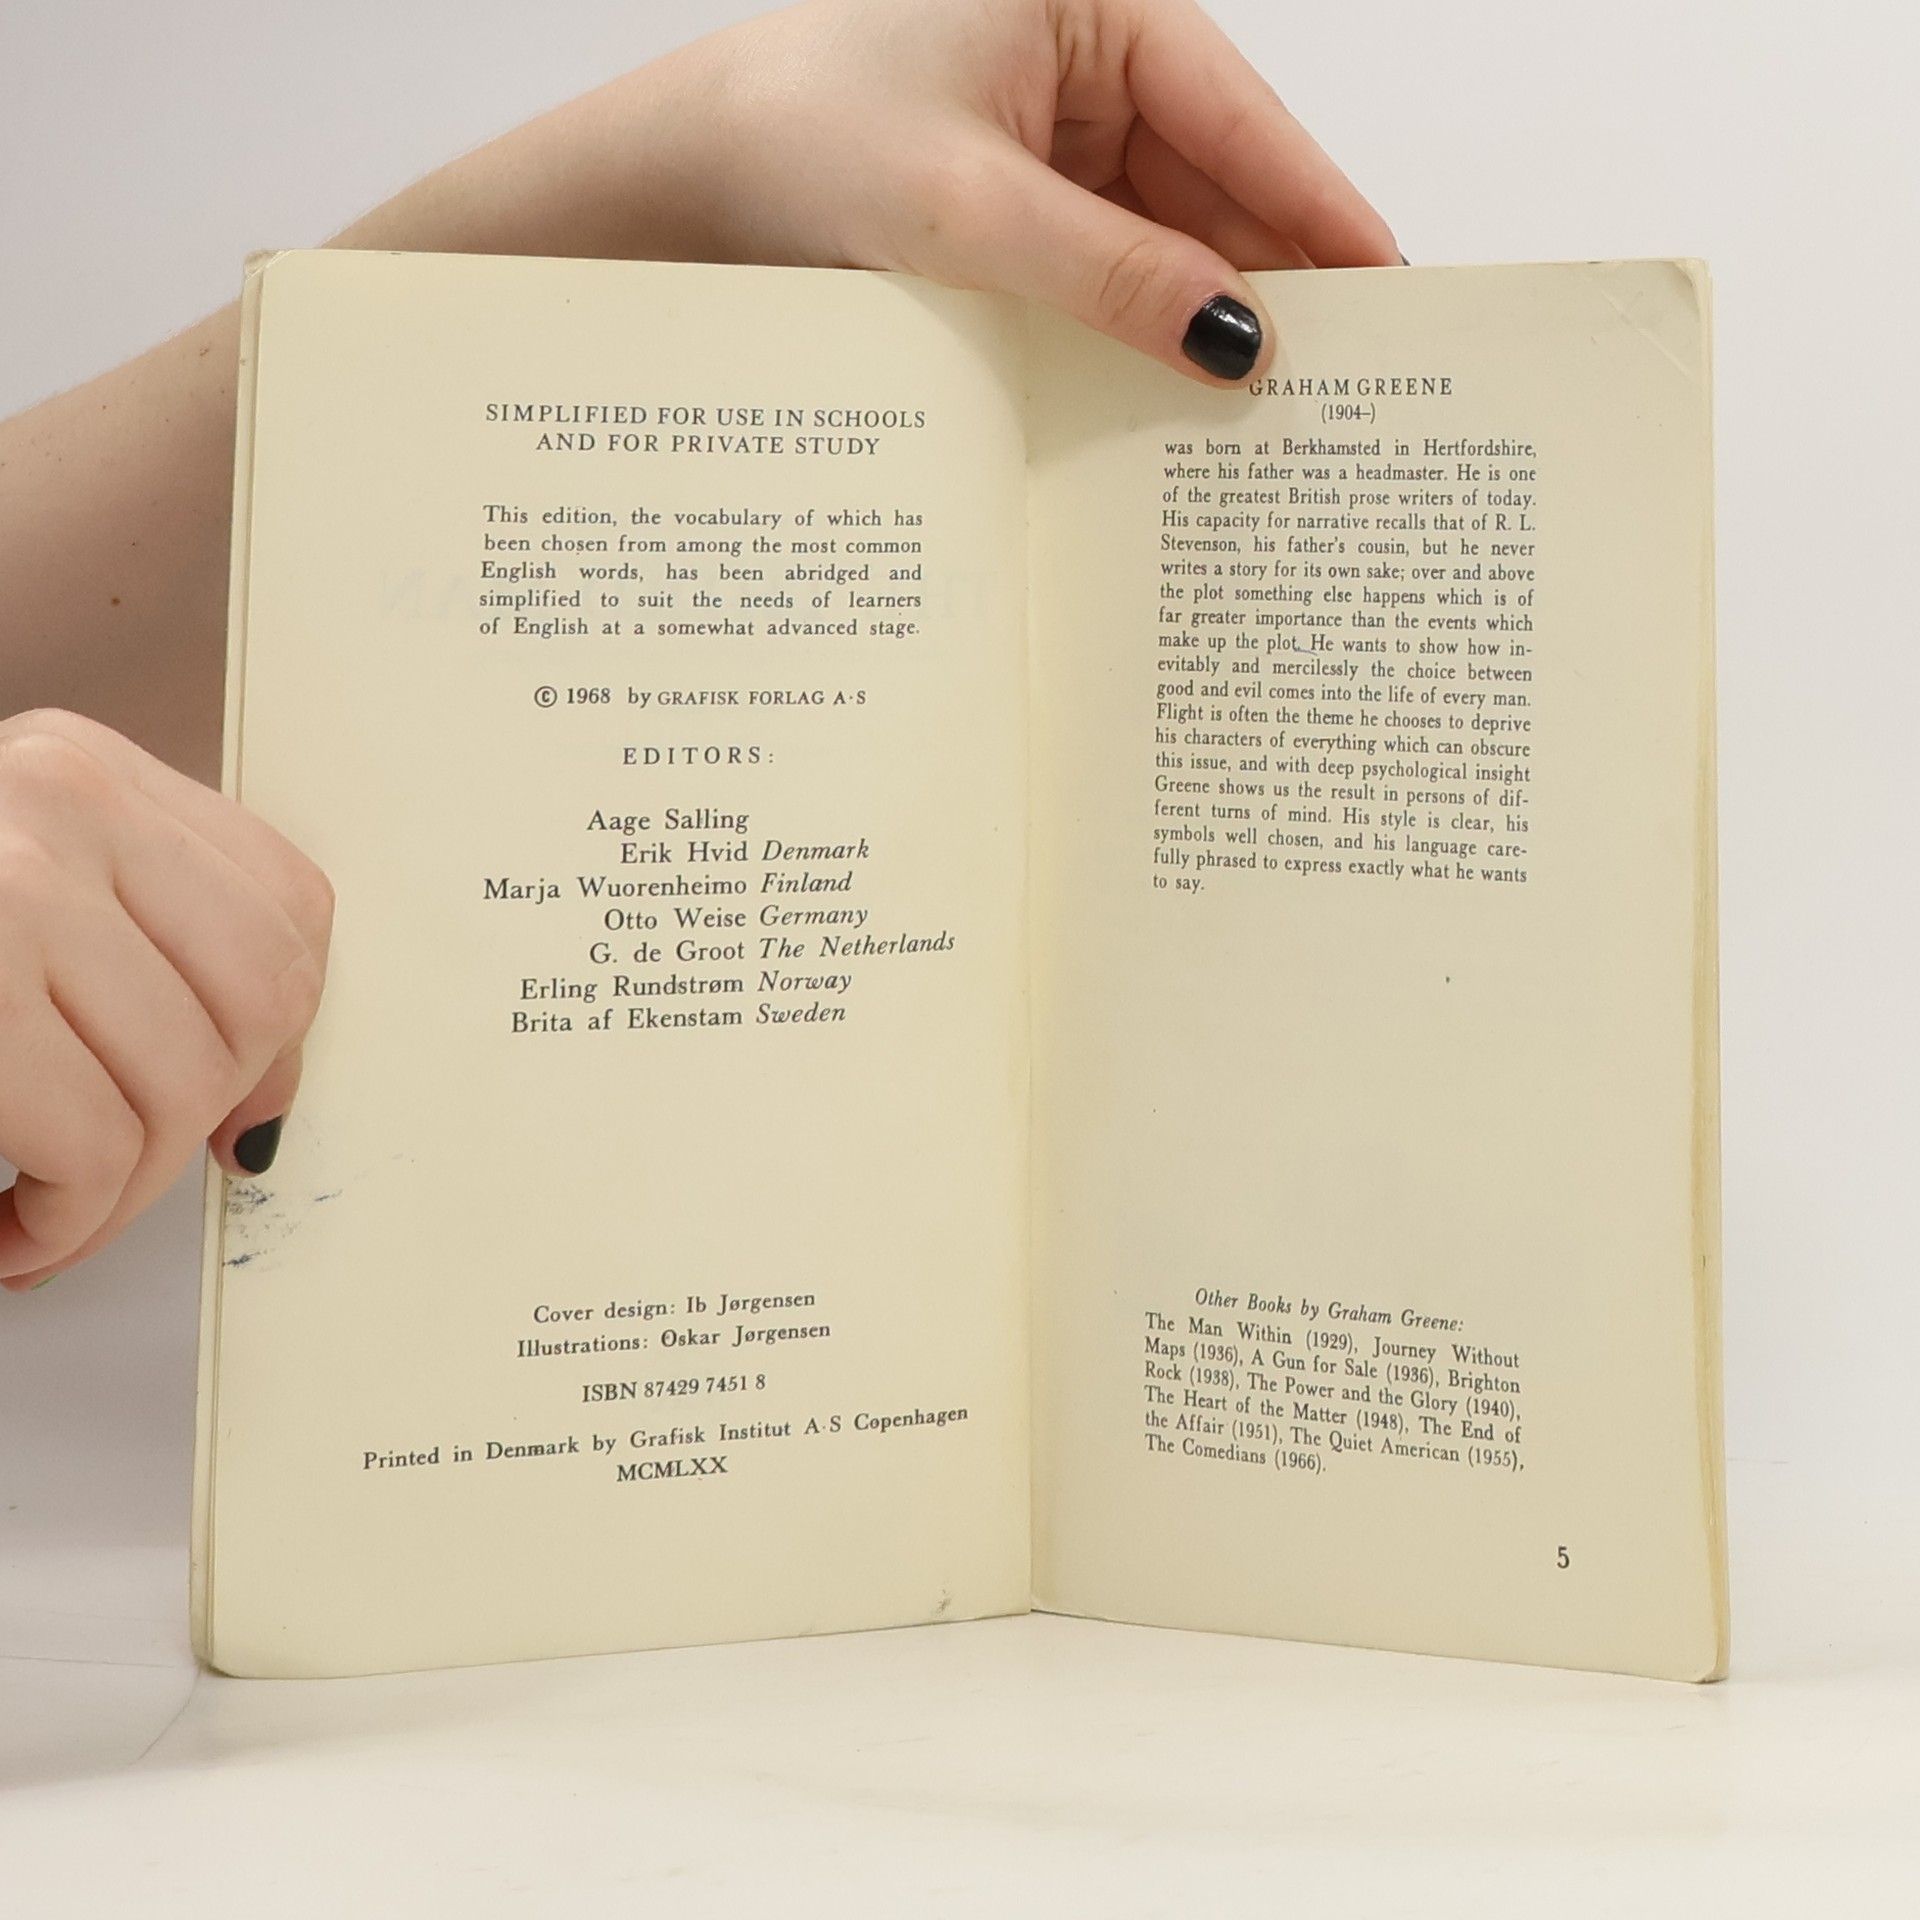 SIMPLIFIED FOR USE IN SCHOOLS
AND FOR PRIVATE STUDY
This edition, the vocabulary of which has
been chosen from among the most common
English words, has been abridged and
simplified to suit the needs of learners
of English at a somewhat advanced stage.
© 1968 by GRAFISK FORLAG A·S
EDITORS:
Aage Salling
Erik Hvid Denmark
Marja Wuorenheimo Finland
Otto Weise Germany
G. de Groot The Netherlands
Erling Rundstrøm Norway
Brita af Ekenstam Sweden
Cover design: Ib Jørgensen
Illustrations: Oskar Jørgensen
ISBN 87429 7451 8
Printed in Denmark by Grafisk Institut A·S Copenhagen
MCMLXX
GRAHAM GREENE
(1904–)
was born at Berkhamsted in Hertfordshire,
where his father was a headmaster. He is one
of the greatest British prose writers of today.
His capacity for narrative recalls that of R. L.
Stevenson, his father's cousin, but he never
writes a story for its own sake; over and above
the plot something else happens which is of
far greater importance than the events which
make up the plot. He wants to show how in-
evitably and mercilessly the choice between
good and evil comes into the life of every man.
Flight is often the theme he chooses to deprive
his characters of everything which can obscure
this issue, and with deep psychological insight
Greene shows us the result in persons of dif-
ferent turns of mind. His style is clear, his
symbols well chosen, and his language care-
fully phrased to express exactly what he wants
to say.
Other Books by Graham Greene:
The Man Within (1929), Journey Without
Maps (1936), A Gun for Sale (1936), Brighton
Rock (1938), The Power and the Glory (1940),
The Heart of the Matter (1948), The End of
the Affair (1951), The Quiet American (1955),
The Comedians (1966).
5